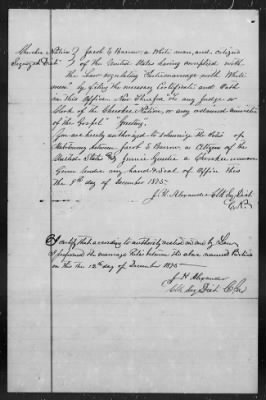 Cherokee Nation } Jacob E Brown a White man, and, citizen
Sequoyah Dist } of the United States having complied with
the Law regulating "Intermarriage with White
men" by filing the necessary Certificate and Oath
in this Office. Now Therefore to any Judge or
Clerk of the Cherokee Nation, or any ordained minister
of the Gospel "Greeting".
You are hereby authorized to solemnize the Rites of
Matrimony between Jacob E Brown a Citizen of the
United States and Jennie a Cherokee woman
Given under my hand & Seal of Office this
the 9th day of December 1875.
J. H. Alexander Clk Seq Dist
C. N.
I certify that according to authority vested in me by Law
I performed the marriage Rites between the above named Parties
on this the 12th day of December 1875
J. H Alexander
Clk Seq Dist C. N.